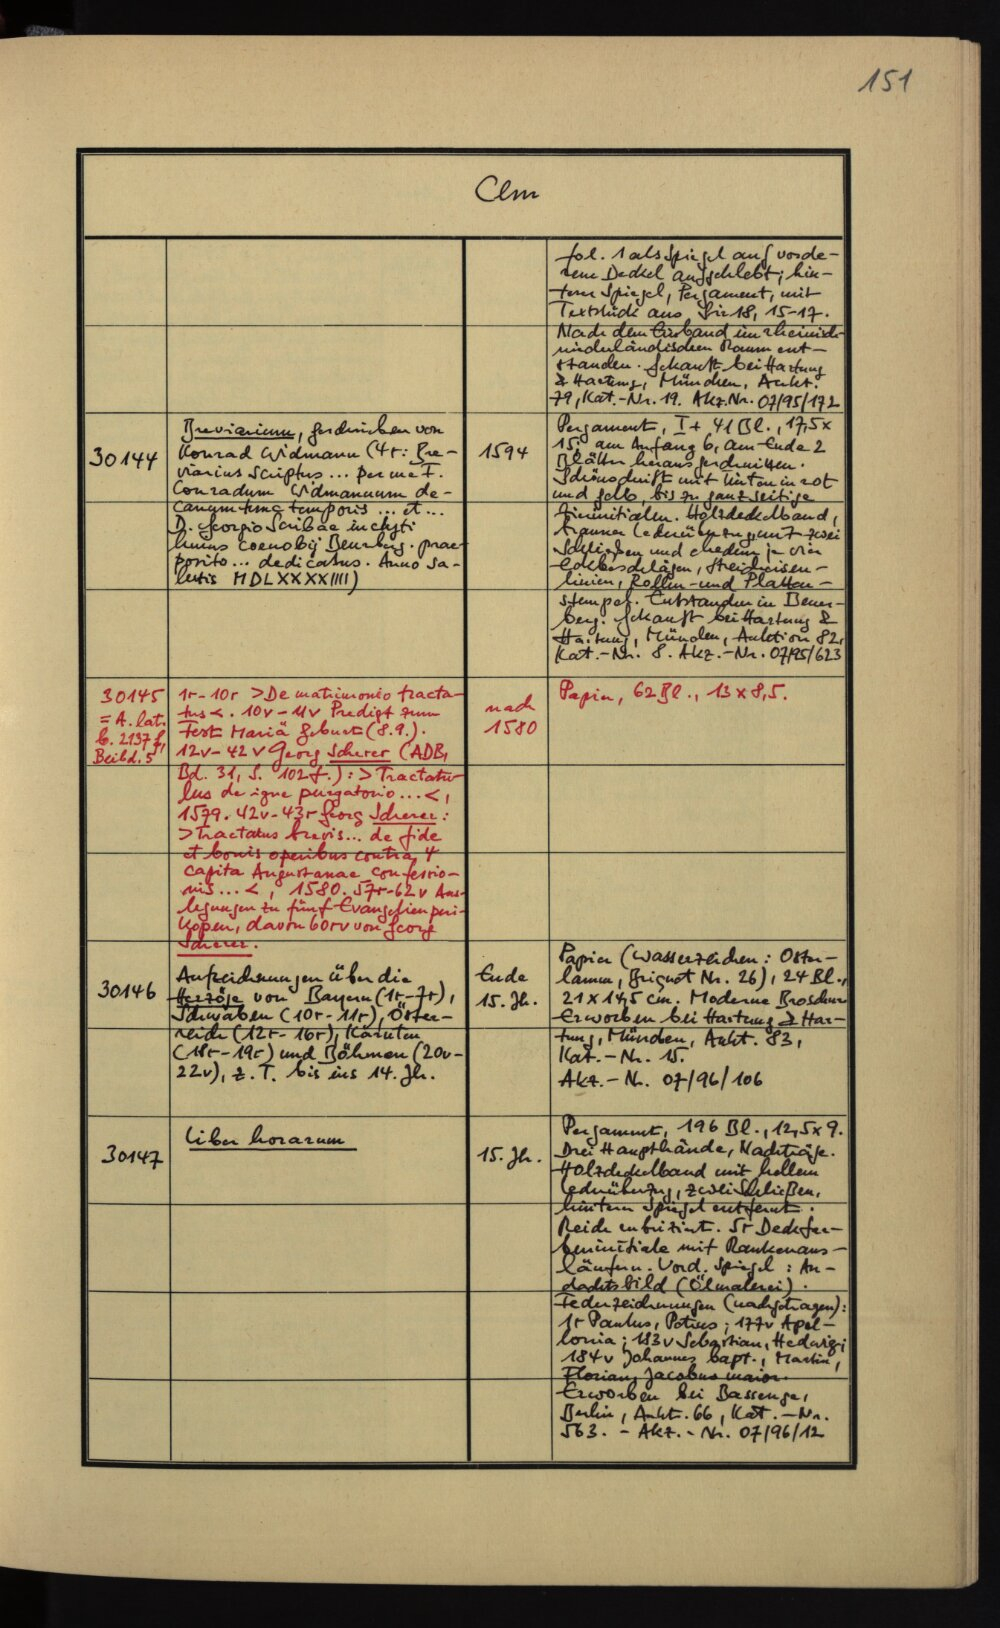 151
Clm
fol. 1 als Spiegel auf vorde-
rem Deckel aufgeklebt; hin-
terer Spiegel, Pergament, mit
Textstück aus Sir 18, 15-17.
Nach dem Einband im rheinisch-
niederländischen Raum ent-
standen. Gekauft bei Hartung
& Hartung, München, Aukt.
79, Kat.-Nr. 19. Akz.Nr. 07/95/172
30144
Breviarium, geschrieben von
Konrad Widmann (4r: Bre-
viarius scriptus ... per me F.
Conradum Widmannum de-
canum tunc temporis ... et ...
D. Georgio Scribae inclyti
huius coenobij Beurberg. prae-
posito ... dedicatus. Anno sa-
lutis MDLXXXXIIII)
1594
Pergament, I + 41 Bl., 17,5 x
15; am Anfang 6, am Ende 2
Blätter herausgeschnitten.
Schönschrift mit Tinten in rot
und gelb, bis zu ganzseitige
Zierinitialen. Holzdeckelband,
brauner Lederüberzug, mit zwei
Schließen und ehedem je vier
Eckbeschlägen, Streicheisen-
linien, Rollen- und Platten-
stempel. Entstanden in Beuer-
berg. Gekauft bei Hartung &
Hartung, München, Auktion 82,
Kat.-Nr. 8. Akz.-Nr. 07/95/623
30145
= A. lat.
b. 2197 f,
Beibd. 5
1r-10r >De matrimonio tracta-
tus<. 10v-11v Predigt zum
Fest Mariä Geburt (8.9.).
12v-42v Georg Scherer (ADB,
Bd. 31, S. 102f.): >Tractatu-
lus de igne purgatorio ...<,
1579. 42v-43r Georg Scherer:
>Tractatus brevis... de fide
et bonis operibus contra 4
capita Augustanae confessio-
nis ...<, 1580. 57r-62v Aus-
legungen zu fünf Evangelienperi-
kopen, davon 60rv von Georg
Scherer.
nach
1580
Papier, 62 Bl., 13 x 8,5.
30146
Aufzeichnungen über die
Herzöge von Bayern (1r-7r),
Schwaben (10r-11r), Öster-
reich (12r-16r), Kärnten
(18r-19r) und Böhmen (20v-
22v), z. T. bis ins 14. Jh.
Ende
15. Jh.
Papier (Wasserzeichen: Oster-
lamm, Briquet Nr. 26), 24 Bl.,
21 x 14,5 cm. Moderne Broschur
Erworben bei Hartung & Har-
tung, München, Aukt. 83,
Kat.-Nr. 15.
Akz.-Nr. 07/96/106
30147
Liber horarum
15. Jh.
Pergament, 196 Bl., 12,5 x 9.
Drei Haupthände, Nachträge.
Holzdeckelband mit hellem
Lederüberzug, zwei Schließen,
hinterer Spiegel entfernt.
Reich rubriziert. 5r Deckfar-
beninitiale mit Rankenaus-
läufern. Vord. Spiegel: An-
dachtsbild (Ölmalerei).
Federzeichnungen (nachgetragen):
1r Paulus, Petrus; 177v Apol-
lonia; 183v Sebastian, Hedwig;
184v Johannes bapt., Martin,
Florian, Jacobus maior.
Erworben bei Bassenge,
Berlin, Aukt. 66, Kat.-Nr.
563. - Akz.-Nr. 07/96/12